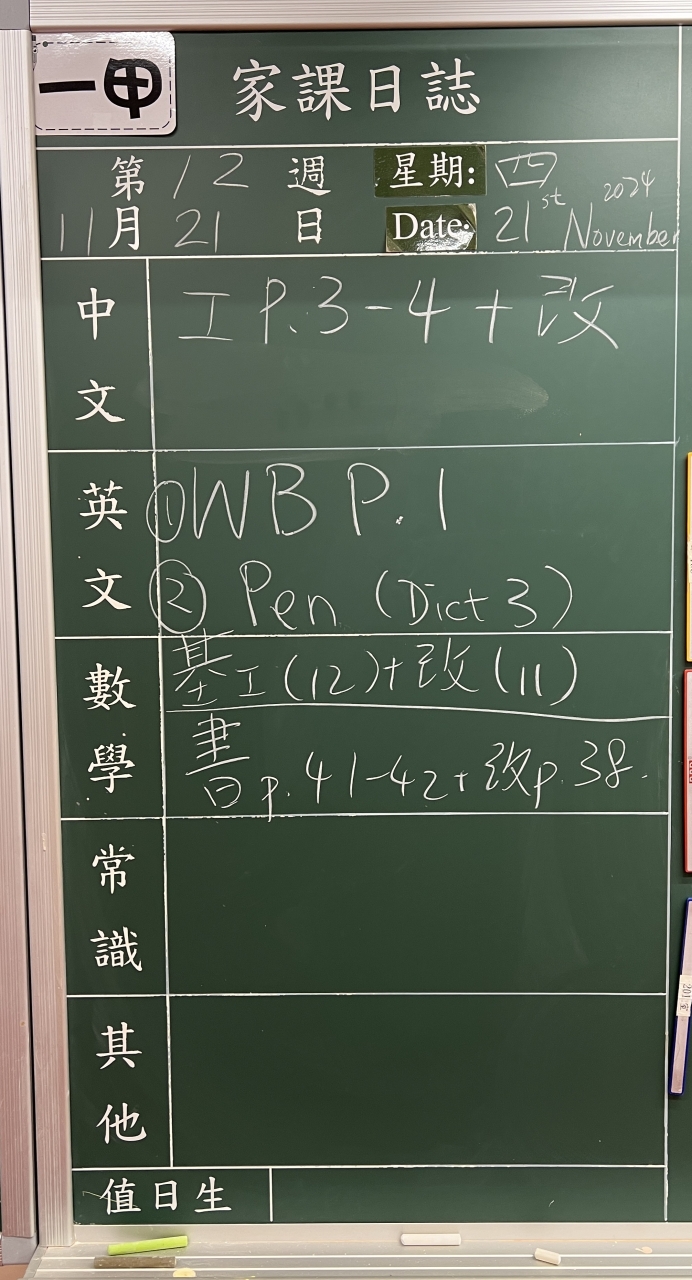 一甲 家課日誌
第 12 週 星期: 四
11月 21 日 Date: 21st November 2024
中文 工 P.3-4 + 改
英文 ① WB P.1
② Pen (Dict 3)
數學 基工(12)+改(11)
書 p.41-42+改p.38.
常識
其他
值日生